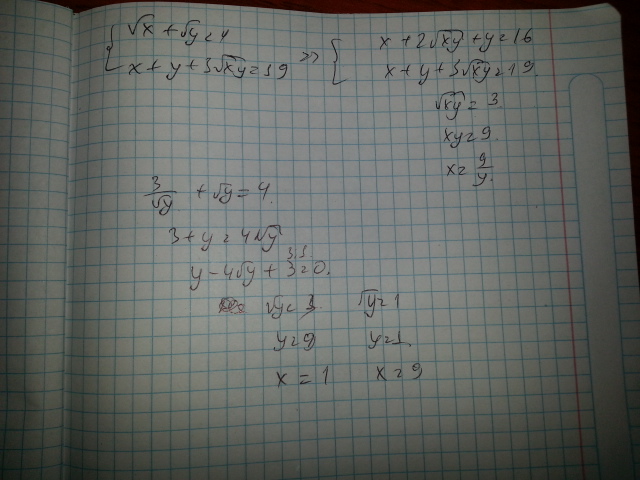 { √x + √y = 4
x + y + 3√xy = 19 >> { x + 2√xy + y = 16
x + y + 3√xy = 19.
√xy = 3
xy = 9.
x = 9/y.
3/√y + √y = 4.
3 + y = 4√y
3; 1
y - 4√y + 3 = 0.
√y = 3 √y = 1
y = 9 y = 1.
x = 1 x = 9